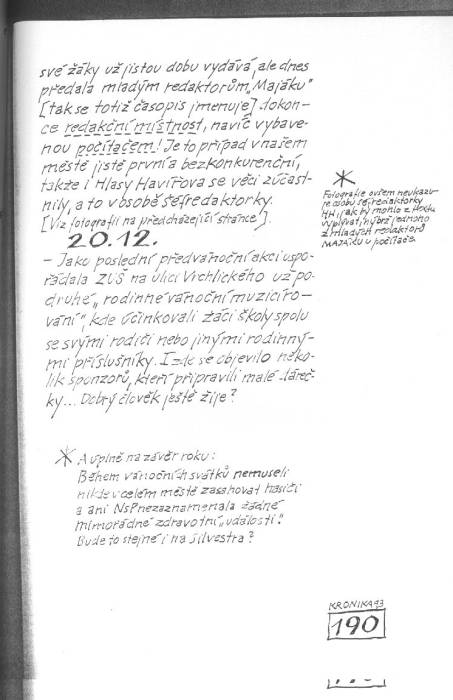 své žáky už jistou dobu vydává, ale dnes
předala mladým redaktorům „Majáku"
[tak se totiž časopis jmenuje] dokon-
ce redakční místnost, navíc vybave-
nou počítačem! Je to případ v našem
městě jistě první a bezkonkurenční,
takže i Hlasy Havířova se věci zúčast-
nily, a to v osobě šéfredaktorky.
[Viz fotografii na předcházející stránce].
20.12.
– Jako poslední předvánoční akci uspo-
řádala ZUŠ na ulici Vrchlického už po-
druhé „rodinné vánoční muzicíro-
vání", kde účinkovali žáci školy spolu
se svými rodiči nebo jinými rodinný-
mi příslušníky. I zde se objevilo něko-
lik sponzorů, kteří připravili malé dáreč-
ky... Dobrý člověk ještě žije?
* A úplně na závěr roku:
Během vánočních svátků nemuseli
nikde v celém městě zasahovat hasiči
a ani NsP nezaznamenala žádné
mimořádné zdravotní „události".
Bude to stejné i na Silvestra?
*
Fotografie ovšem neukazu-
je osobu šéfredaktorky
HH, jak by mohlo z textu
vyplývat, nýbrž jednoho
z mladých redaktorů
MAJÁKU u počítače.
KRONIKA 93
190